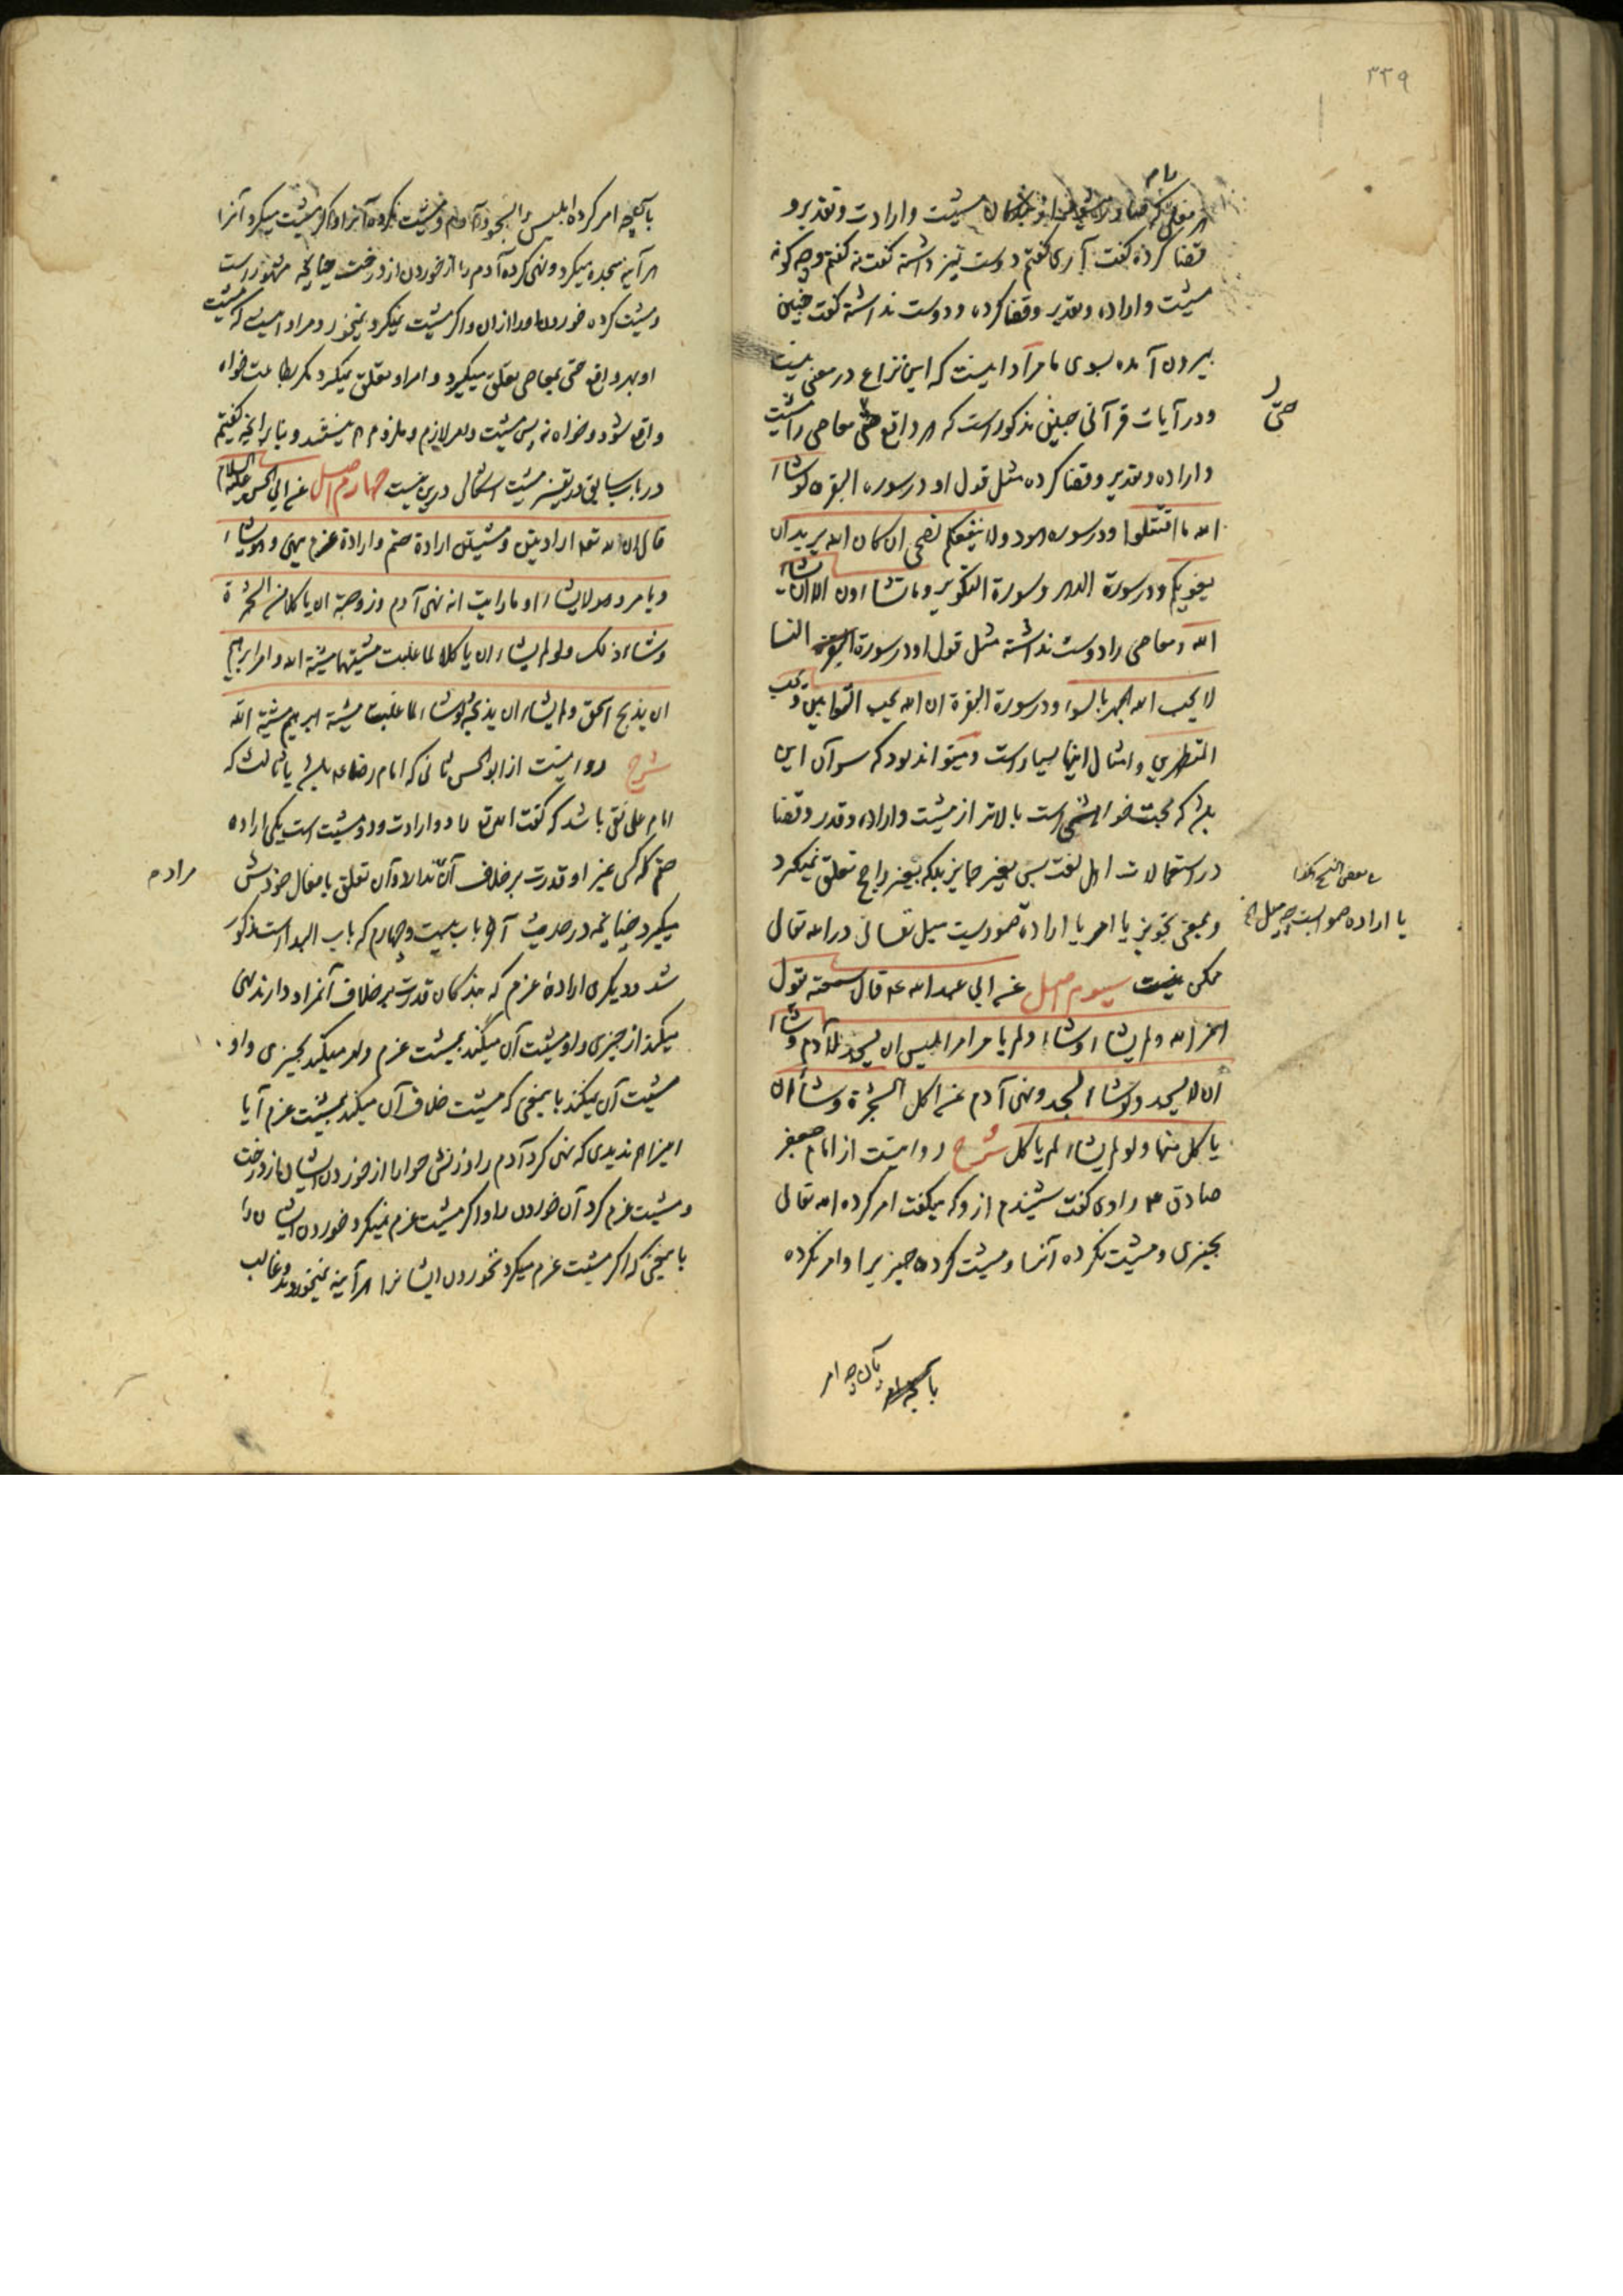 ۳۳۹
مشیت و ارادت و تقدیر و
قضا کرده گفت آری گفتم دوست نیز داشته گفت نه گفتم و چه گونه
مشیت و اراده و تقدیر و قضا کرده و دوست نداشته گفت چنین
بیرون آمده بسوی ما مراد اینست که این نزاع در معنی نیست
و در آیات قرآنی چنین مذکور است که هر واقع حتی معاصی را مشیت
حتی
و اراده و تقدیر و قضا کرده مثل قول او در سوره البقره لو شاء
الله ما اقتتلوا و در سوره هود ولا ینفعکم نصحی ان کان الله یرید ان
یغویکم و در سورة الدهر و سورة التکویر وما تشاءون الا ان یشاء
الله و معاصی را دوست نداشته مثل قول او در سورة النسا
لا یحب الله الجهر بالسوء و در سورة البقرة ان الله یحب التوابین و یحب
المتطهرین و امثال اینها بسیار است و میتواند بود که سر آن این
باشد که محبت است بالاتر از مشیت و اراده و قدر و قضا
در استعمالات اهل لغت پس بغیر جایز بلکه بغیر راجح تعلق نمیگیرد
و بمعنی تجویز یا امر یا اراده میل نفسانی در الله تعالی
ممکن نیست سیوم اصل عن ابی عبد الله ع قال سمعته یقول
امر الله ولم یشاء و شاء ولم یامر امر ابلیس ان یسجد لآدم و شاء
ان لا یسجد ولو شاء لسجد و نهی آدم عن اکل الشجرة و شاء ان
یاکل منها ولو لم یشاء لم یاکل شرح روایتست از امام جعفر
صادق ع راوی گفت شنیدم از و که میگفت امر کرده الله تعالی
بچیزی و مشیت نکرده آنرا و مشیت کرده چیزیرا و امر نکرده
بآن چه امر
بآن چه امر کرده ابلیس را بسجود آدم و مشیت نکرده آنرا و اگر مشیت میکرد آنرا
هر آینه سجده میکرد و نهی کرده آدم را از خوردن از درخت چنانچه مشهور است
و مشیت کرده خوردن او را از آن و اگر مشیت نمیکرد نمیخورد و مراد اینست که مشیت
او بهر واقع حتی بمعاصی تعلق میگیرد و امر او تعلق نمیگیرد مگر بطاعت خواه
واقع شود و خواه نه پس مشیت و امر لازم و ملزوم هم نیستند و بنا بر آنچه گفتیم
در باب سابق در تفسیر مشیت اشکالی درین نیست چهارم اصل عن ابی الحسن علیه السلام
قال ان لله تعه ارادتین و مشیتین ارادة حتم و ارادة عزم ینهی و هو یشاء
و یامر و هو لا یشاء او ما رایت انه نهی آدم و زوجته ان یاکلا من الشجرة
و شاء ذلک ولو لم یشاء ان یاکلا لما غلبت مشیتهما مشیة الله و امر ابرهیم
ان یذبح اسحق ولم یشاء ان یذبحه ولو شاء لما غلبت مشیة ابرهیم مشیة الله
شرح روایتست از ابو الحسن ثانی که امام رضا ع باشد یا ثالث که
امام علی نقی باشد که گفت الله تع را دو ارادت و دو مشیت است یکی اراده
حتم که کسی غیر او قدرت بر خلاف آن ندارد و آن تعلق بافعال خودش
مراد م
میگیرد چنانچه در حدیث آخر باب بیست و چهارم که باب البدا است مذکور
شد و دیگری ارادۀ عزم که بندگان قدرت بر خلاف آنمراد دارند نهی
میکند از چیزی و او مشیت آن میکند بمشیت عزم و امر میکند بچیزی و او
مشیت آن نمیکند باینمعنی که مشیت خلاف آن میکند بمشیت عزم آیا
اینرا هم ندیدی که نهی کرد آدم را و زنش حوا را از خوردن ایشان از درخت
و مشیت عزم کرد آن خوردن را و اگر مشیت عزم نمیکرد خوردن ایشان را
باینمعنی که اگر مشیت عزم میکرد نخوردن ایشانرا هر آینه نمیخوردند و غالب